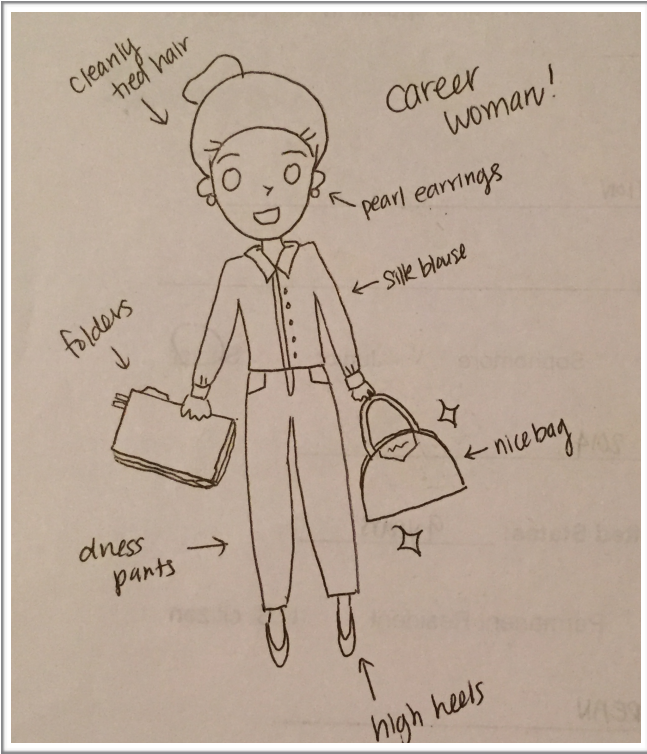 cleanly
tied hair
career
woman!
pearl earrings
silk blouse
folders
nice bag
dress
pants
high heels